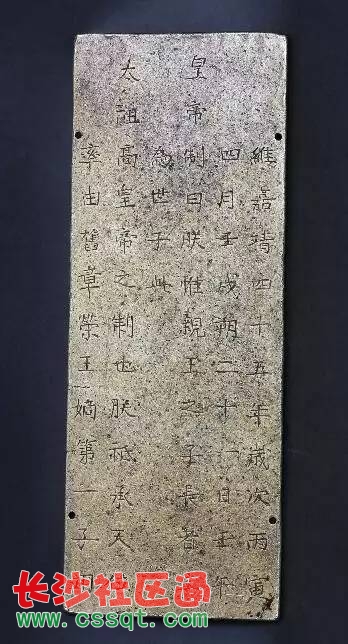 維嘉靖四十五年歲次丙寅
四月壬戌朔二十一日壬午
皇帝制曰朕惟親王之子長者
為世子此
太祖高皇帝之制也朕祗承天
率由舊章榮王嫡第一子
长沙社区通
www.cssqt.com